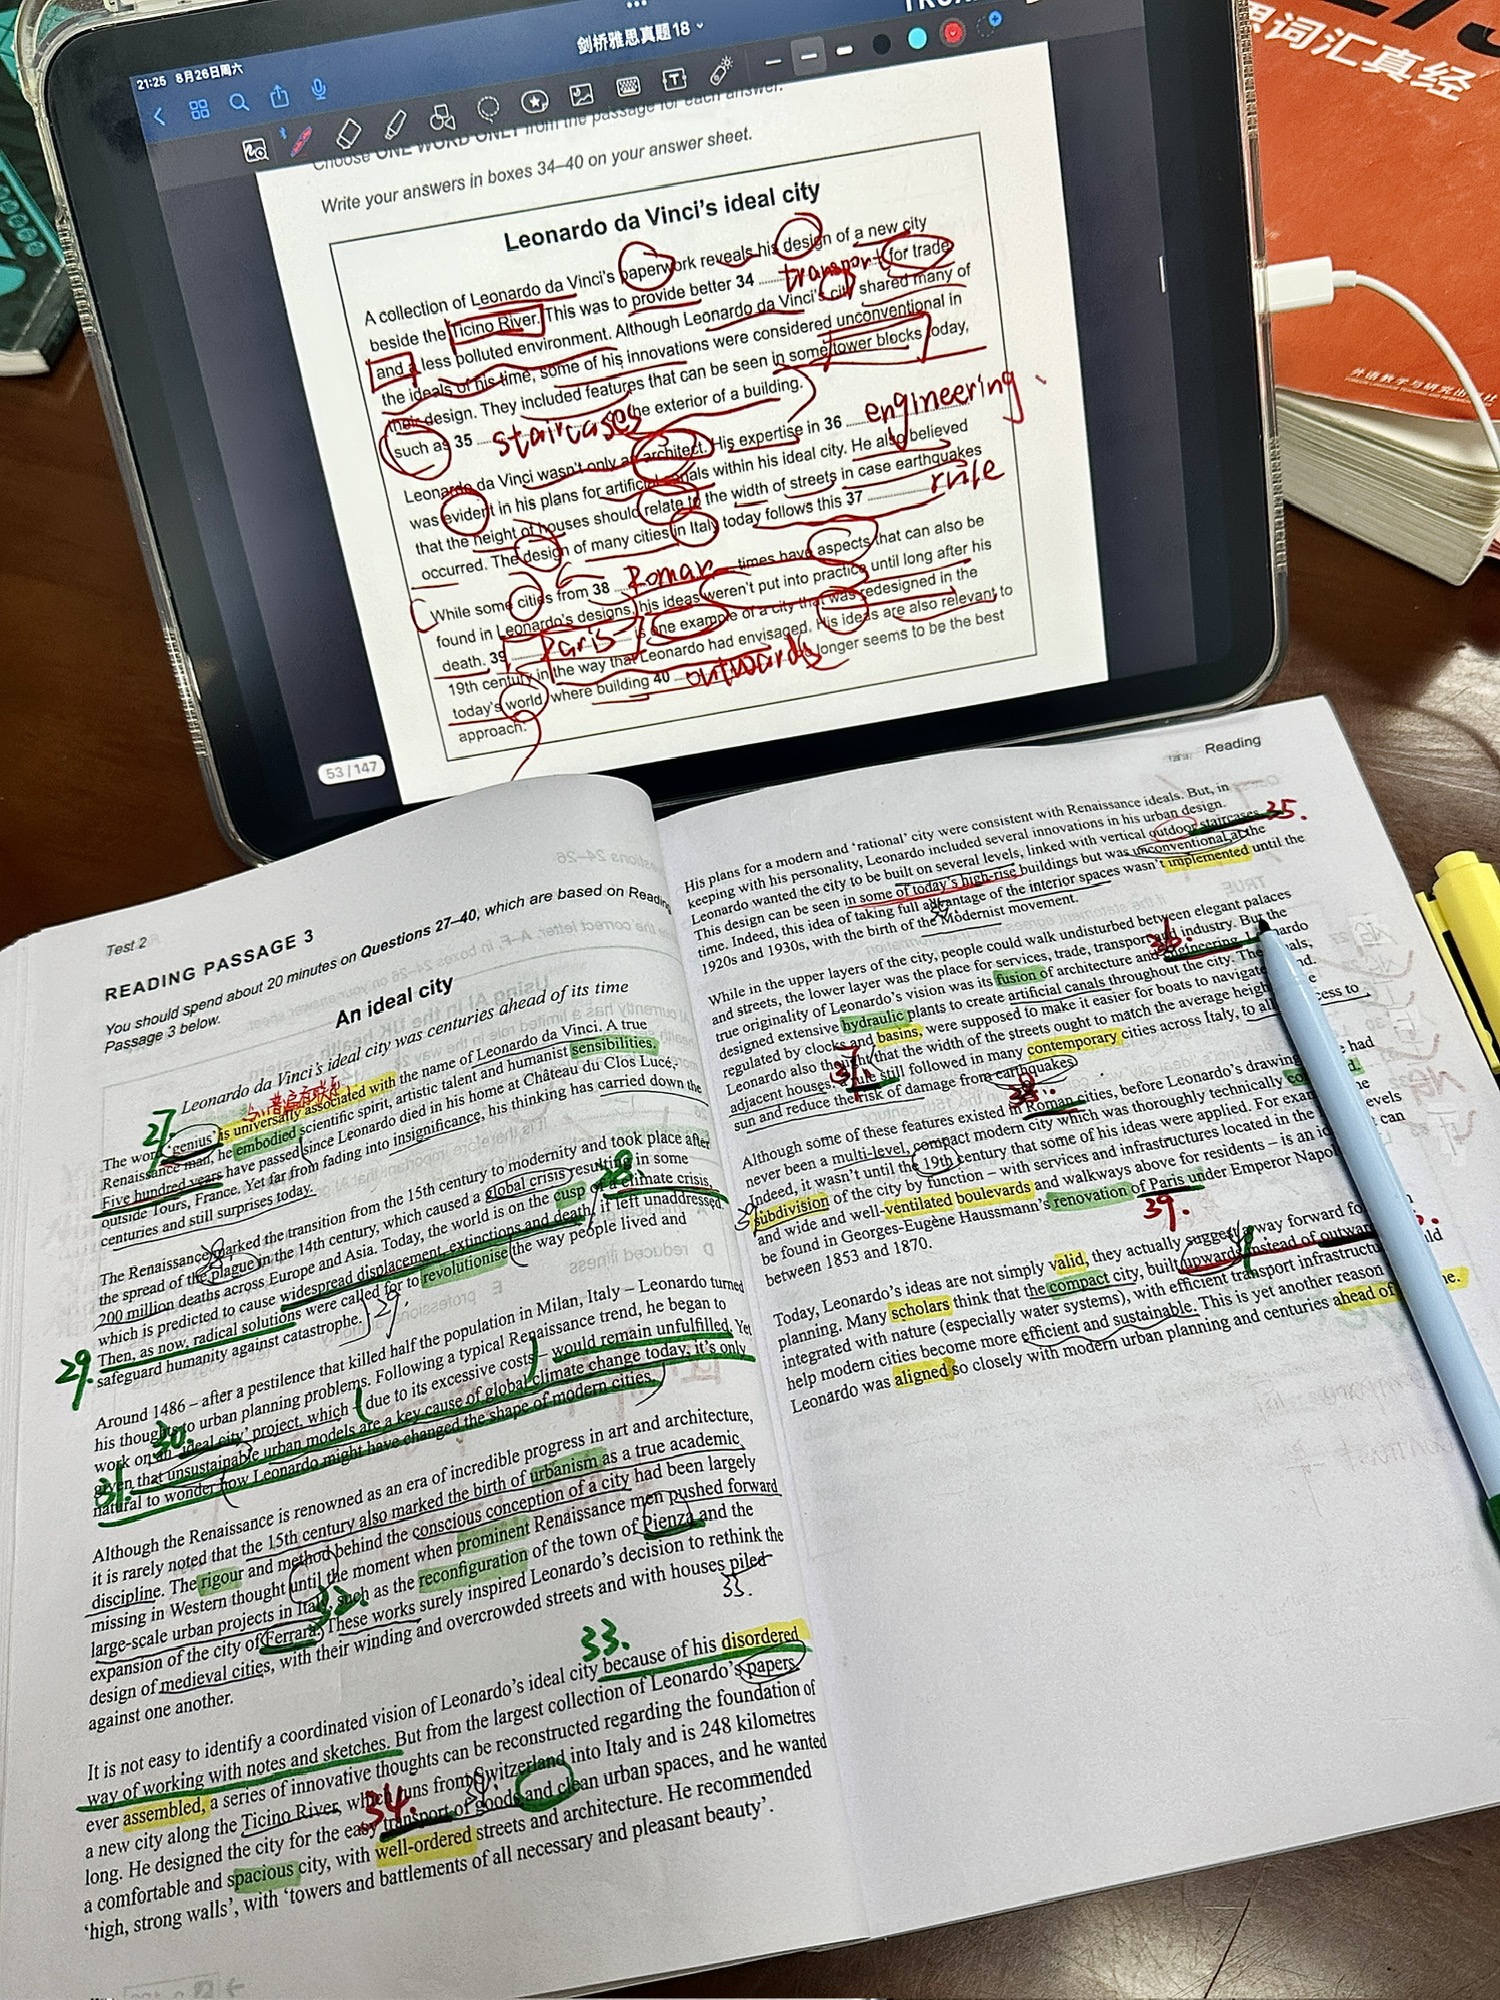 21:25 8月26日周六
剑桥雅思真题18
Choose ONE WORD ONLY from the passage for each answer.
Write your answers in boxes 34–40 on your answer sheet.
Leonardo da Vinci's ideal city
A collection of Leonardo da Vinci's paperwork reveals his design of a new city
beside the Ticino River. This was to provide better 34 transport for trade
and a less polluted environment. Although Leonardo da Vinci's city shared many of
the ideals of his time, some of his innovations were considered unconventional in
their design. They included features that can be seen in some tower blocks today,
such as 35 staircases the exterior of a building.
Leonardo da Vinci wasn't only an architect. His expertise in 36 engineering
was evident in his plans for artificial canals within his ideal city. He also believed
that the height of houses should relate to the width of streets in case earthquakes
occurred. The design of many cities in Italy today follows this 37 rule
While some cities from 38 Roman times have aspects that can also be
found in Leonardo's designs, his ideas weren't put into practice until long after his
death. 39 Paris is one example of a city that was redesigned in the
19th century in the way that Leonardo had envisaged. His ideas are also relevant to
today's world, where building 40 outwards longer seems to be the best
approach.
53 / 147
思词汇真经
外语教学与研究出版社
Test 2
READING PASSAGE 3
You should spend about 20 minutes on Questions 27–40, which are based on Reading
Passage 3 below.
An ideal city
Leonardo da Vinci's ideal city was centuries ahead of its time
27
The word 'genius' is universally associated with the name of Leonardo da Vinci. A true
Renaissance man, he embodied scientific spirit, artistic talent and humanist sensibilities.
Five hundred years have passed since Leonardo died in his home at Château du Clos Lucé,
outside Tours, France. Yet far from fading into insignificance, his thinking has carried down the
centuries and still surprises today.
28.
The Renaissance marked the transition from the 15th century to modernity and took place after
the spread of the plague in the 14th century, which caused a global crisis resulting in some
200 million deaths across Europe and Asia. Today, the world is on the cusp of a climate crisis,
which is predicted to cause widespread displacement, extinctions and death, if left unaddressed.
Then, as now, radical solutions were called for to revolutionise the way people lived and
29. safeguard humanity against catastrophe. 29.
Around 1486 – after a pestilence that killed half the population in Milan, Italy – Leonardo turned
his thoughts to urban planning problems. Following a typical Renaissance trend, he began to
30.
work on an 'ideal city' project, which due to its excessive costs – would remain unfulfilled. Yet
given that unsustainable urban models are a key cause of global climate change today, it's only
31.
natural to wonder how Leonardo might have changed the shape of modern cities.
Although the Renaissance is renowned as an era of incredible progress in art and architecture,
it is rarely noted that the 15th century also marked the birth of urbanism as a true academic
discipline. The rigour and method behind the conscious conception of a city had been largely
missing in Western thought until the moment when prominent Renaissance men pushed forward
large-scale urban projects in Italy, such as the reconfiguration of the town of Pienza and the
32.
expansion of the city of Ferrara. These works surely inspired Leonardo's decision to rethink the
design of medieval cities, with their winding and overcrowded streets and with houses piled
against one another.
33.
33.
It is not easy to identify a coordinated vision of Leonardo's ideal city because of his disordered
way of working with notes and sketches. But from the largest collection of Leonardo's papers
ever assembled, a series of innovative thoughts can be reconstructed regarding the foundation of
a new city along the Ticino River, which runs from Switzerland into Italy and is 248 kilometres
34.
long. He designed the city for the easy transport of goods and clean urban spaces, and he wanted
a comfortable and spacious city, with well-ordered streets and architecture. He recommended
'high, strong walls', with 'towers and battlements of all necessary and pleasant beauty'.
Reading
His plans for a modern and 'rational' city were consistent with Renaissance ideals. But, in
keeping with his personality, Leonardo included several innovations in his urban design.
Leonardo wanted the city to be built on several levels, linked with vertical outdoor staircases. 35.
This design can be seen in some of today's high-rise buildings but was unconventional at the
time. Indeed, this idea of taking full advantage of the interior spaces wasn't implemented until the
1920s and 1930s, with the birth of the Modernist movement.
While in the upper layers of the city, people could walk undisturbed between elegant palaces
and streets, the lower layer was the place for services, trade, transport and industry. But the
36.
true originality of Leonardo's vision was its fusion of architecture and engineering.
designed extensive hydraulic plants to create artificial canals throughout the city. The
regulated by clocks and basins, were supposed to make it easier for boats to navigate
Leonardo also thought that the width of the streets ought to match the average height
37.
adjacent houses: rule still followed in many contemporary cities across Italy, to
sun and reduce the risk of damage from earthquakes.
38.
Although some of these features existed in Roman cities, before Leonardo's drawing had
never been a multi-level, compact modern city which was thoroughly technically
Indeed, it wasn't until the 19th century that some of his ideas were applied. For
subdivision of the city by function – with services and infrastructures located in the levels
and wide and well-ventilated boulevards and walkways above for residents – is an can
be found in Georges-Eugène Haussmann's renovation of Paris under Emperor
39.
between 1853 and 1870.
Today, Leonardo's ideas are not simply valid, they actually suggest a way forward for
planning. Many scholars think that the compact city, built upwards instead of
integrated with nature (especially water systems), with efficient transport
help modern cities become more efficient and sustainable. This is yet another reason
Leonardo was aligned so closely with modern urban planning and centuries ahead of